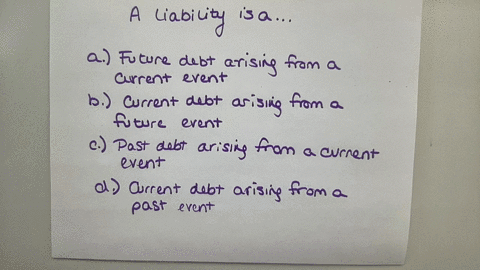 A Liability is a...
a.) Future debt arising from a
current event
b.) Current debt arising from a
future event
c.) Past debt arising from a current
event
d.) Current debt arising from a
past event